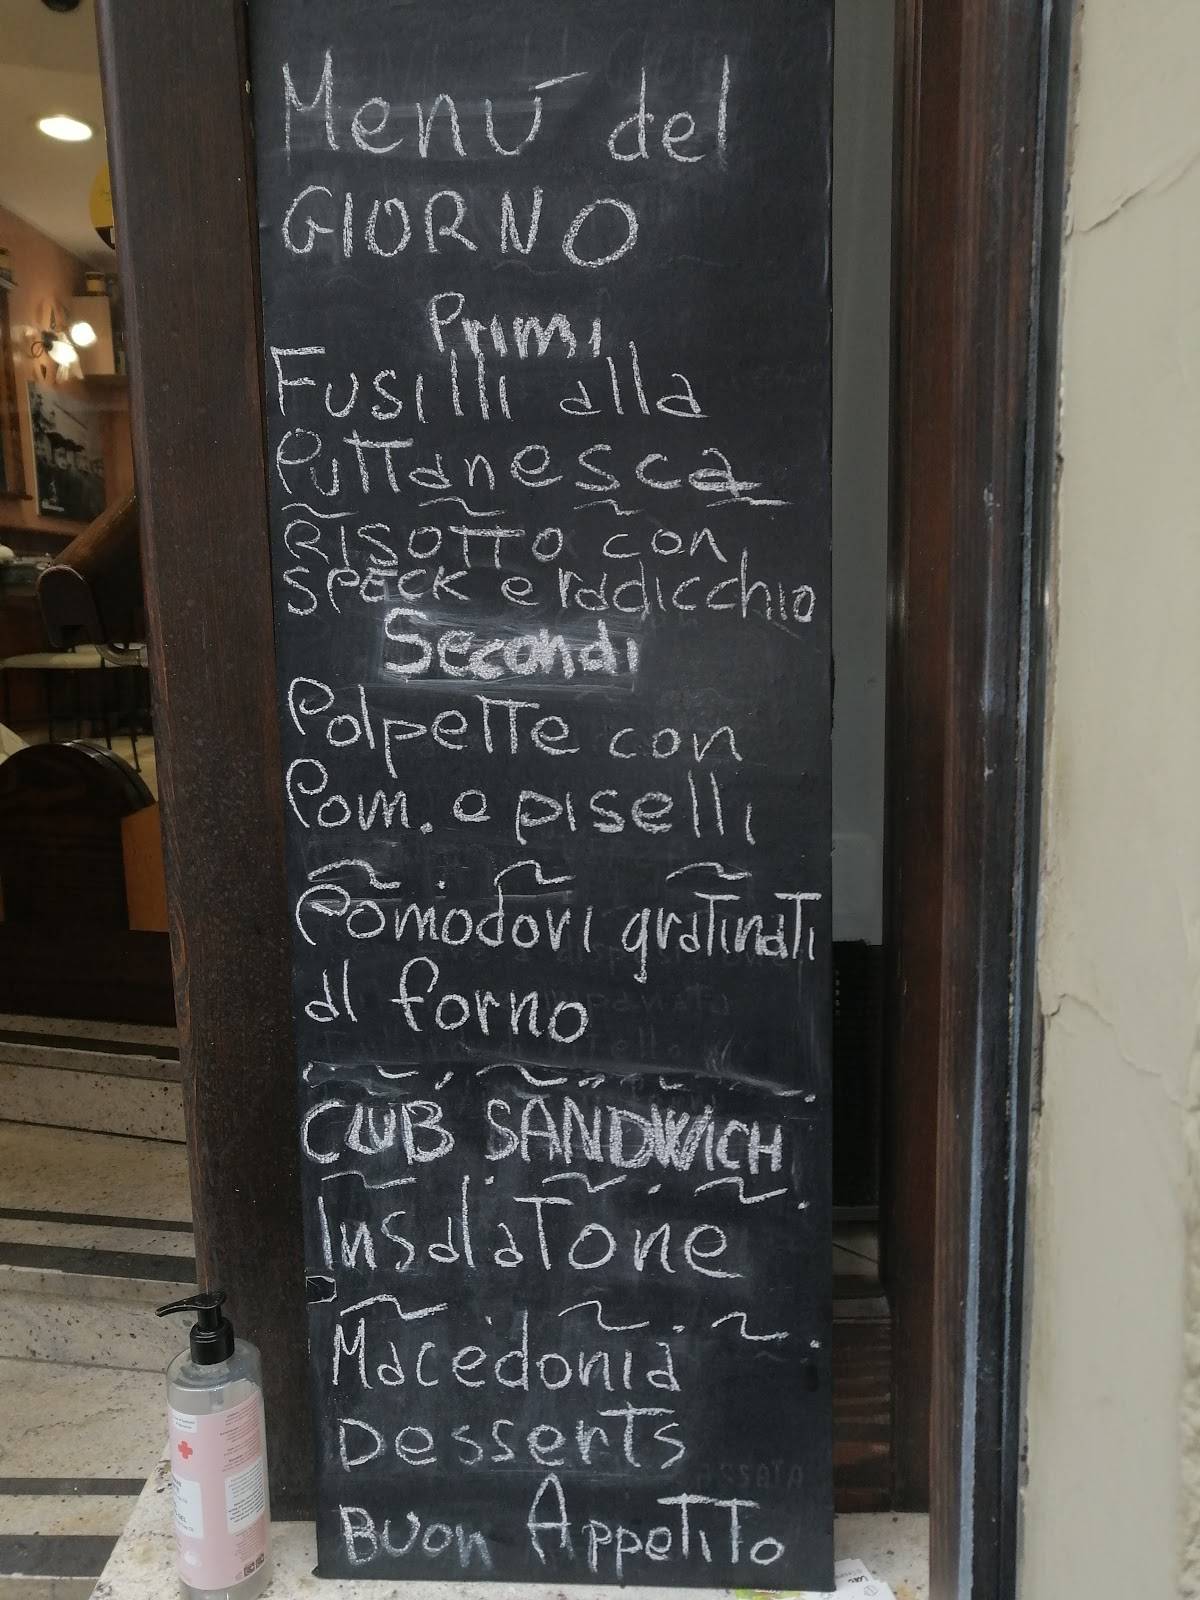 Menú del
GIORNO
Primi
Fusilli alla
Puttanesca
Risotto con
Speck e radicchio
Secondi
Polpette con
Pom. e piselli
Pomodori gratinati
al forno
CLUB SANDWICH
Insalatone
Macedonia
Desserts
Buon Appetito